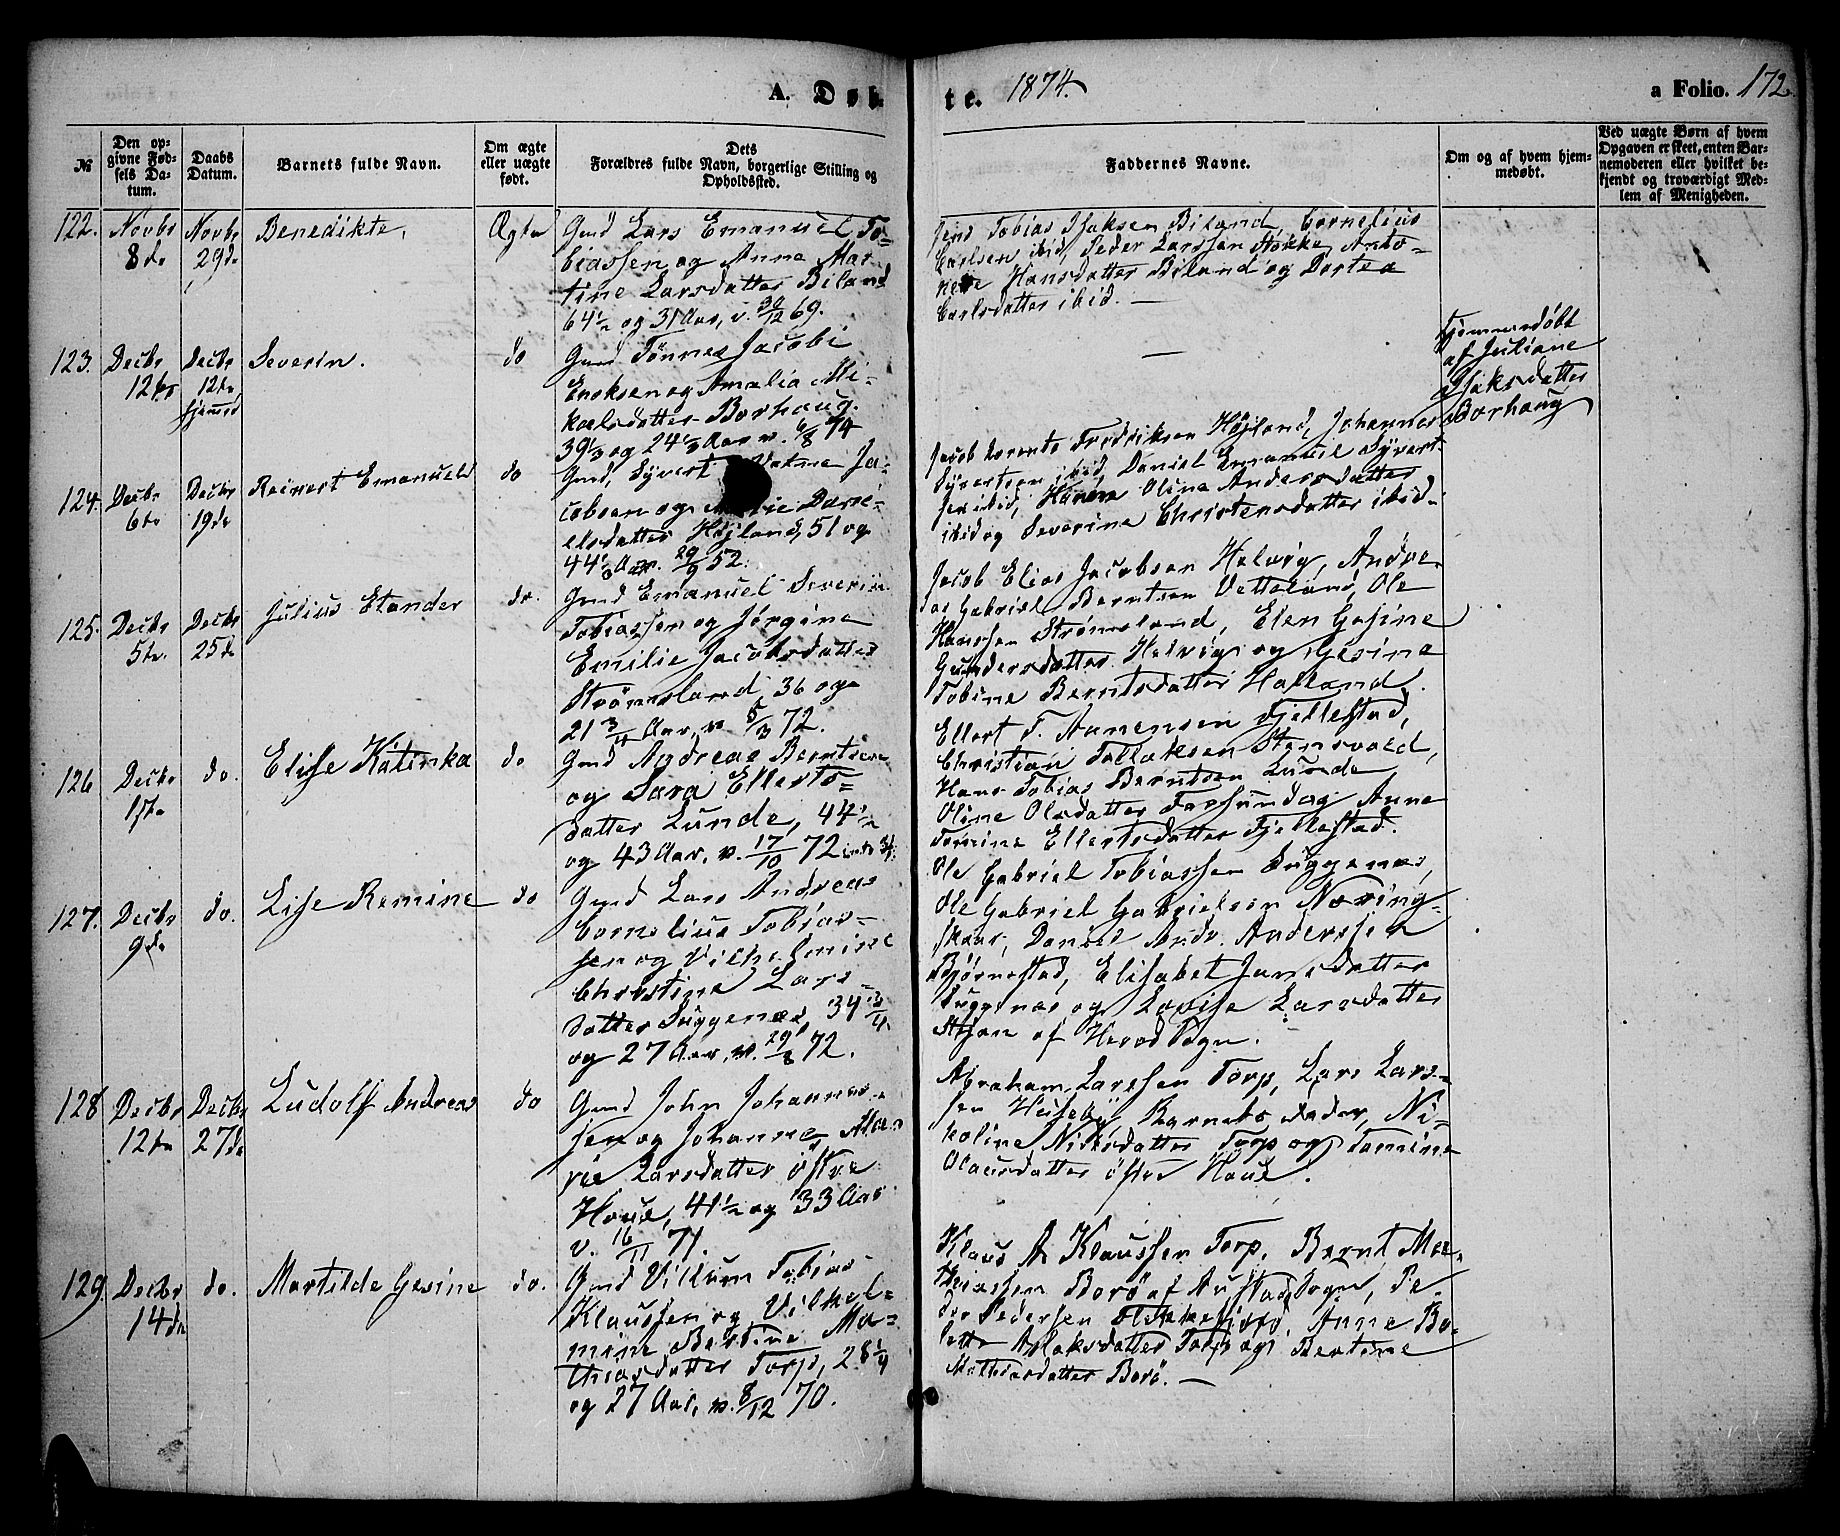 A. Døb
te. 1874.
a Folio. 172.
№
Den opgivne Fødsels Datum.
Daabs Datum.
Barnets fulde Navn.
Om ægte eller uægte født.
Dets Forældres fulde Navn, borgerlige Stilling og Opholdssted.
Faddernes Navne.
Om og af hvem hjemmedøbt.
Ved uægte Børn af hvem Opgaven er skeet, enten Barnemoderen eller hvilket bekjendt og troværdigt Medlem af Menigheden.
122. Novbr 8de Novbr 29de Benedikte. Ægte
Gmd Lars Emanuel To=
biassen og Anne Mar
tine Larsdatter Biland
64½ og 31 Aar, v. 30/12 69.
Tobias Isaksen Biland, Cornelius
Carlsen ibid, Peder Larssen Stokke, Anto-
Hansdatter Biland og Dortea
Carlsdatter ibid. —
123. Decbr 12te Decbr 12te hjemmed Severin. do
Gmd Tønnes Jacobi
Enoksen og Amalia Mi-
kaelsdatter Borhaug.
39⅓ og 24⅓ Aar v. 6/8 74
—
Hjemmedøbt
af Juliane
Isaksdatter
Borhaug
124. Decbr 6te Decbr 19de Reinert Emanuel do
Gmd, Syvert Ja-
cobsen og Dani-
elsdatter Højland, 51 og
44 Aar. 29/9 52.
Jacob Berents Fredriksen Højland, Johannes
Syvertsen ibid, Daniel Emanuel Syvert-
sen ibid, Olina Andersdatter
ibid og Severine Christensdatter ibid.
125. Decbr 5te Decbr 25de Julius Elander do.
Gmd Emanuel Severin
Tobiassen og Jørgine
Emilie Jacobsdatter
Strømsland, 36 og
21¾ Aar, v. 5/3 72.
Jacob Elias Jacobsen Helvig, Andre-
as Gabriel Berntsen Vetteland, Ole
Hanssen Strømsland, Elen Gesine
Gundersdatter Helvig og Gesine
Tobine Berntsdatter Hatland.
126 Decbr 17de do. Elise Katinka do
Gmd Andreas Berntsen
og Sara Ellerts=
datter Lunde, 44½
og 43 Aar, v. 17/10 72
Ellert T. Aanensen Fjellestad,
Christian Tollaksen Stensvold,
Hans Tobias Berntsen Lunde
Oline Olsdatter Farsund og Anne
Tomine Ellertsdatter Fjellestad.
127. Decbr 9de do. Lise Remine do
Gmd Lars Andreas
Cornelius Tobias-
sen og Vilhelmine
Christine Lars-
datter Duggenæs, 34¾
og 27 Aar, v. 29/8 72.
Ole Gabriel Tobiassen Duggenæs,
Ole Gabriel Gabrielsen Næring-
skaar, Daniel Andr. Anderssen
Bjørnestad, Elisabet Jansdatter
Duggenæs og Lovise Larsdatter
af Herad Sogn.
128 Decbr 12te Decbr 27de Ludolf Andreas do
Gmd John Johannes-
sen og Johanne Ma-
rie Larsdatter østre
Haue, 41½ og 33 Aar
v. 16/11 71.
Abraham Larssen Torp, Lars Lars-
sen Huseby, Barnets Fader, Ni-
koline Nilsdatter Torp og Tomine
Olausdatter østre Haue.
129. Decbr 14de do. Martilde Gesine do.
Gmd Villum Tobias
Klaussen og Vilhel-
mine Bertine Ma-
thiasdatter Torp, 28¼
og 27 Aar, v. 8/12 70.
Klaus A Klaussen Torp, Bernt Ma-
thiassen Borø af Austad Sogn, Pe-
der Pedersen Anne Bo-
lette Aslaksdatter Torp og Bertine
Mathiasdatter Borø. —